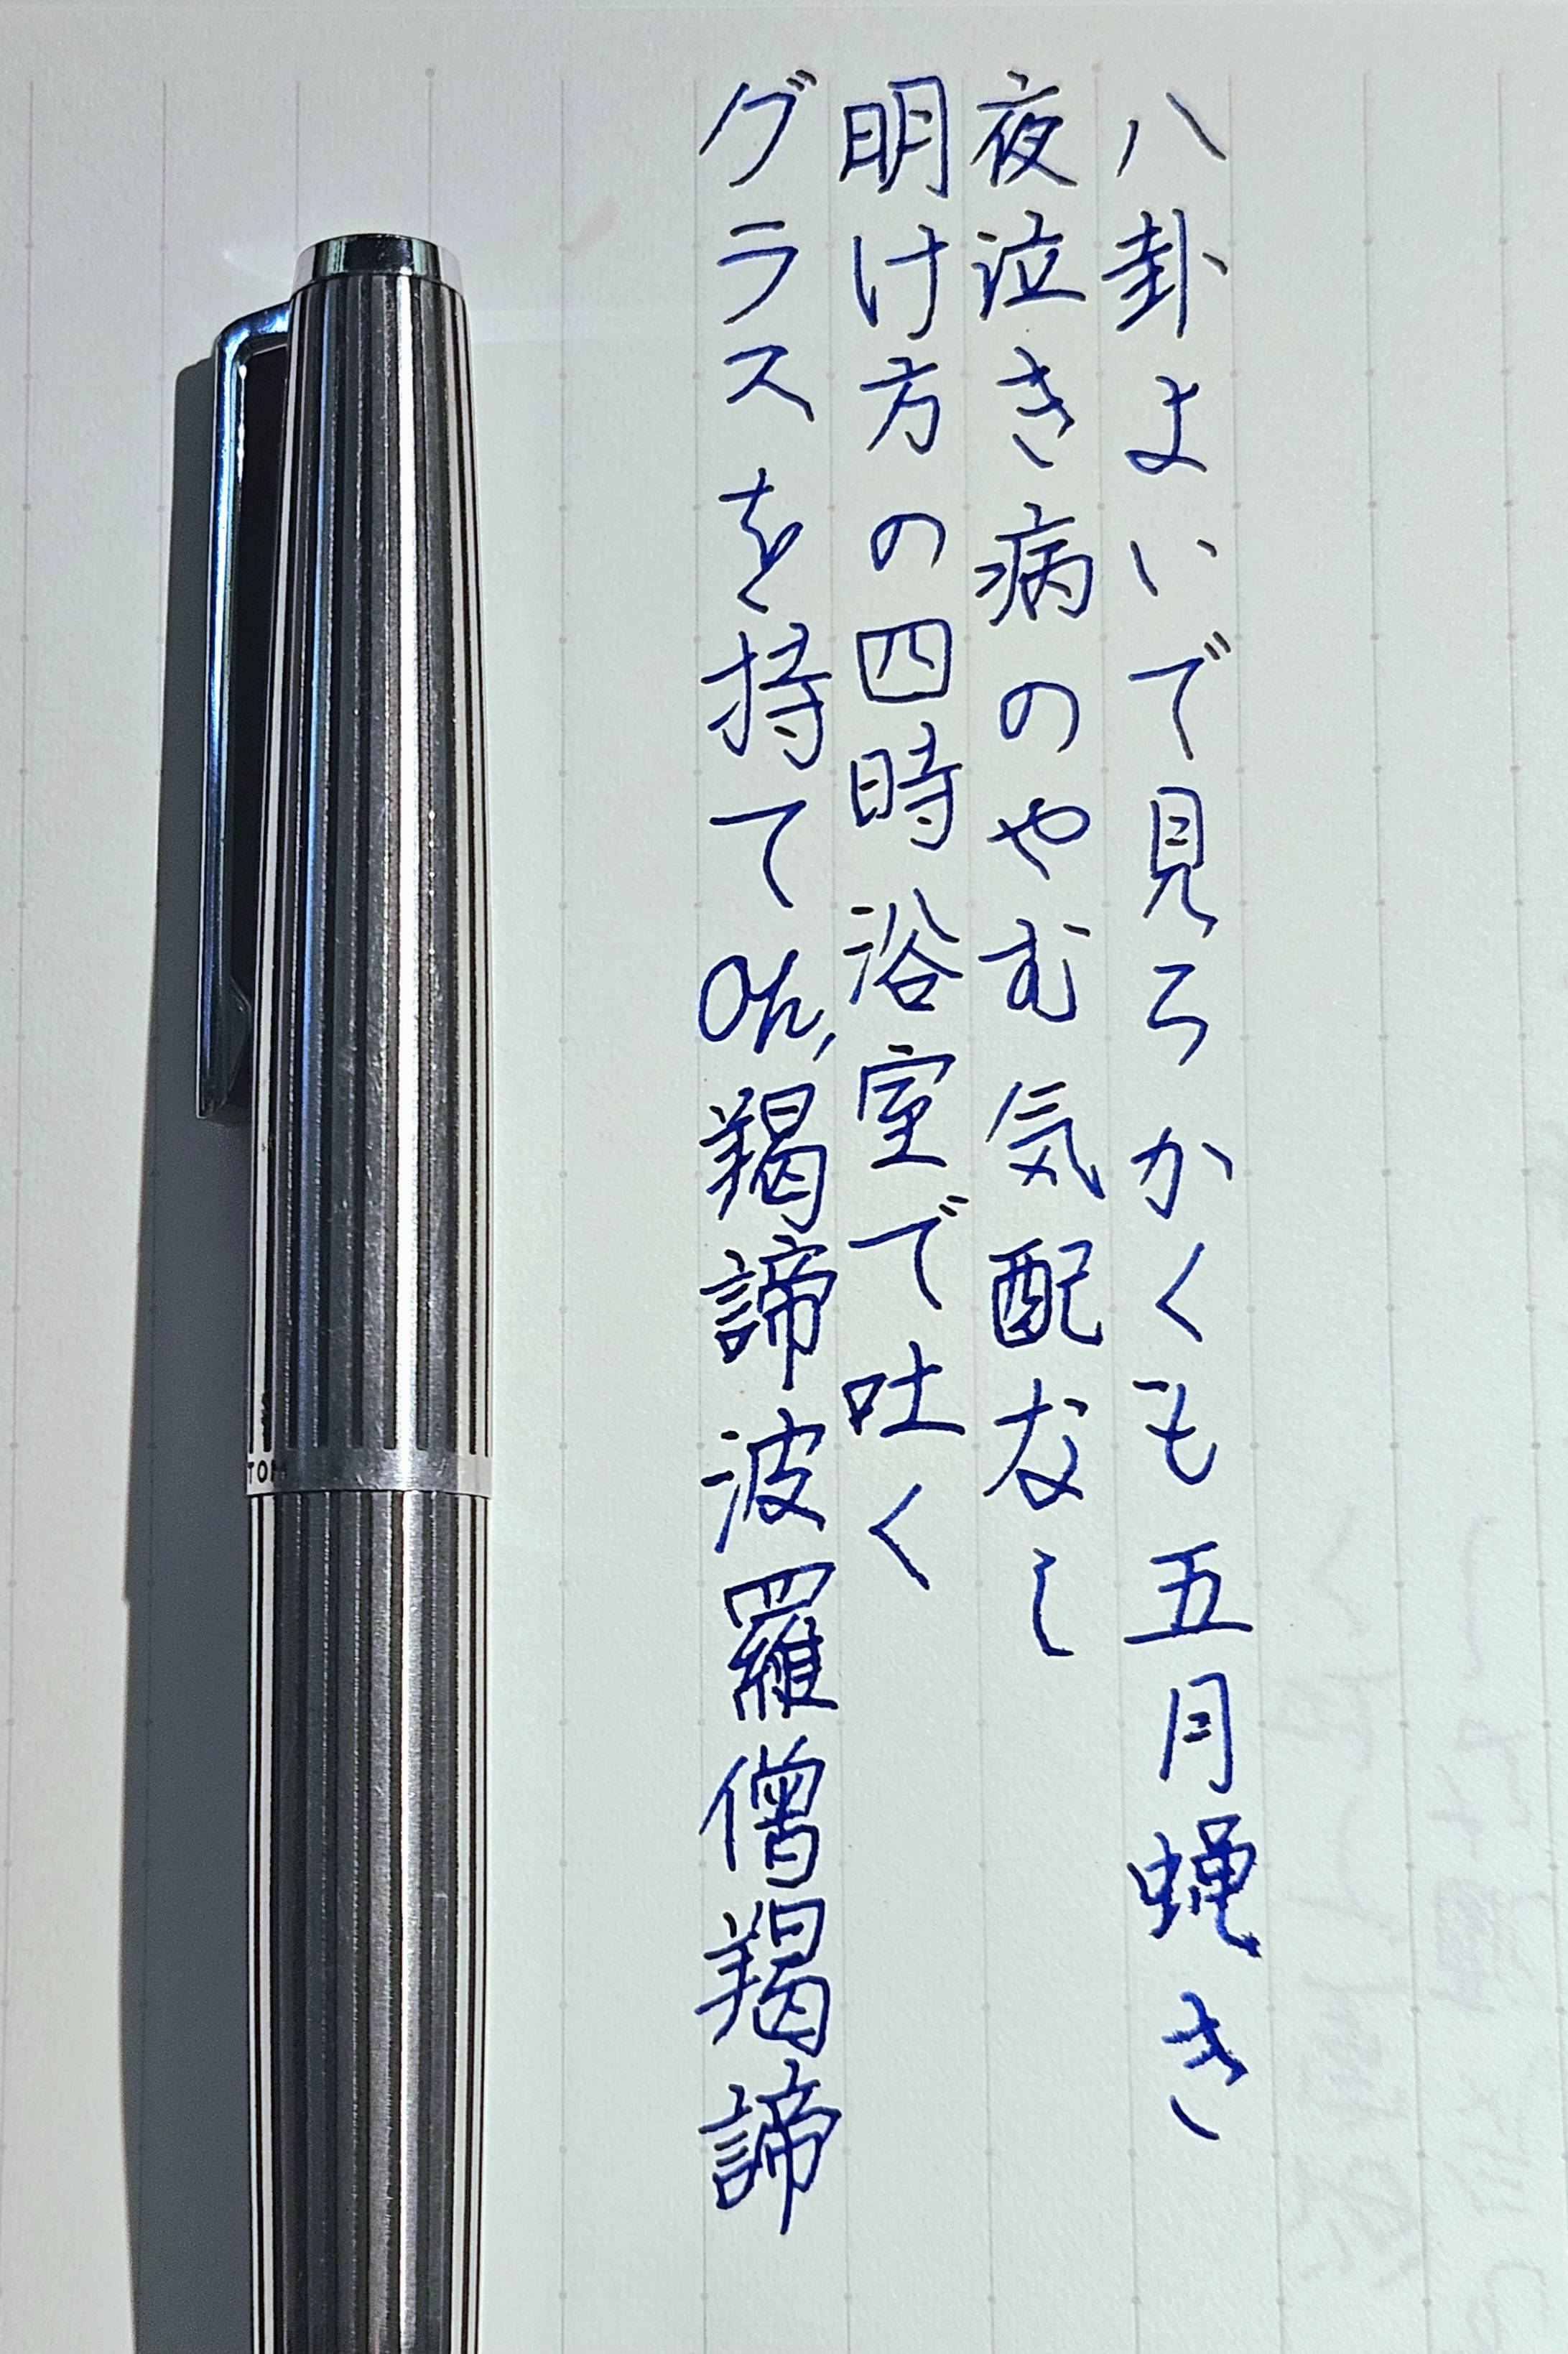 八卦よいで見ろかくも五月蝿き
夜泣き病のやむ気配なし
明け方の四時浴室で吐く
グラスを持て Oh, 羯諦波羅僧羯諦